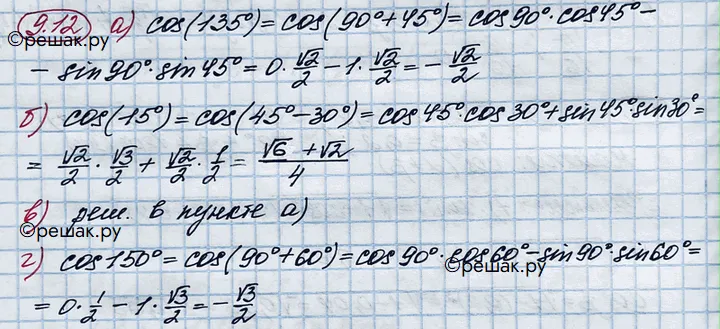 9.12 а) cos(135°) = cos(90°+45°) = cos90°·cos45° −
©решак.ру
− sin90°·sin45° = 0·√2/2 − 1·√2/2 = −√2/2
б) cos(15°) = cos(45°−30°) = cos45°·cos30° + sin45°·sin30° =
= √2/2 · √3/2 + √2/2 · 1/2 = (√6 + √2)/4
в) реш. в пункте а)
©решак.ру
г) cos150° = cos(90°+60°) = cos90°·cos60° − sin90°·sin60° =
©решак.ру
= 0·1/2 − 1·√3/2 = −√3/2